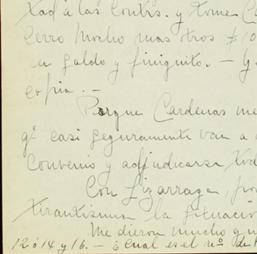 Xad á las Contrs. y tome C
Cerro Mocho mas otros $10
su saldo y finiquito. — y
copia. —
Porque Cardenas me
qe casi seguramente van a
Convenio y adjudicarse Xod
Con Lizarraga, por
Xirantisima la situación
Me dieron mucho qu
12 ó 14 y 16. — ¿Cual es el nº de